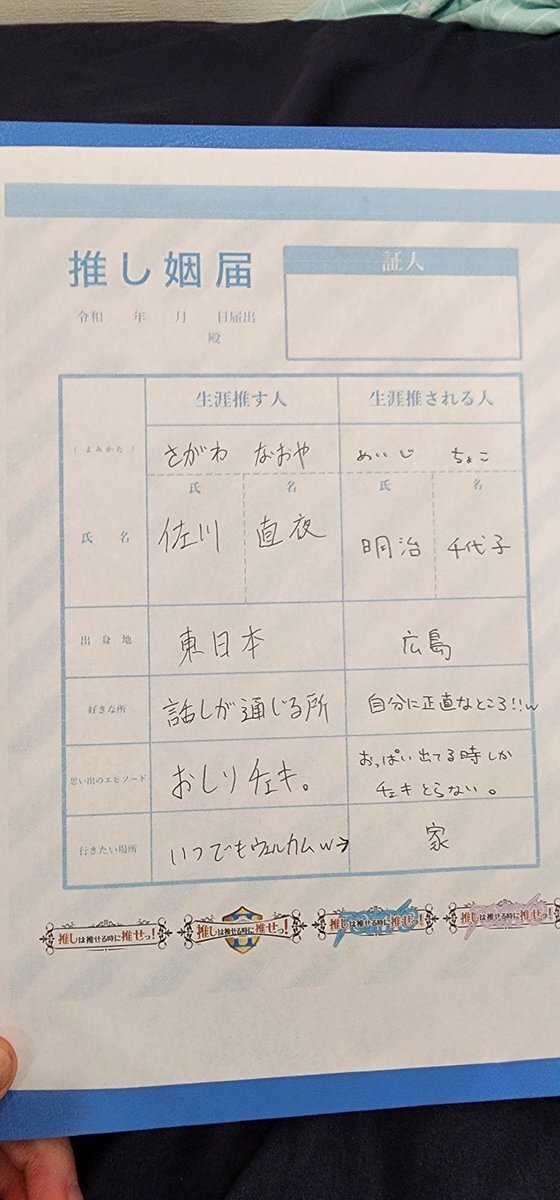 推し姻届
証人
令和 年 月 日届出
殿
生涯推す人 生涯推される人
(よみかた) さがわ なおや めいじ ちょこ
氏 名 氏 名
氏名 佐川 直夜 明治 千代子
出身地 東日本 広島
好きな所 話しが通じる所 自分に正直なところ!!w
思い出のエピソード おしりチェキ。 おっぱい出てる時しか
チェキとらない。
行きたい場所 いつでもウェルカムw→ 家
推しは推せる時に推せっ! 推しは推せる時に推せっ! 推しは推せる時に推せっ! 推しは推せる時に推せっ!